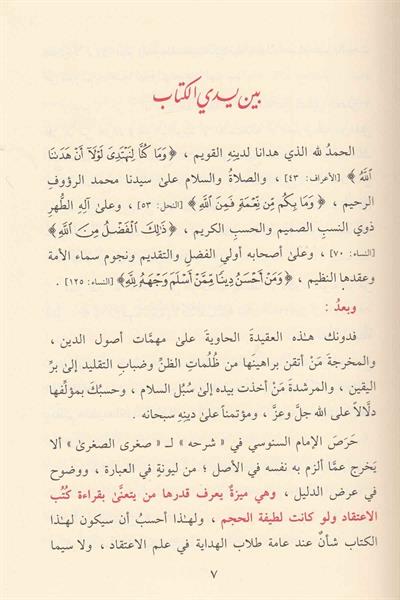 بين يدي الكتاب
الحمدُ لله الذي هدانا لدينِهِ القويم ، ﴿وَمَا كُنَّا لِنَهْتَدِىَ لَوْلَآ أَنْ هَدَىٰنَا
ٱللَّهُ﴾ [الأعراف: ٤٣] ، والصلاةُ والسلام علىٰ سيدنا محمد الرؤوفِ
الرحيم ، ﴿وَمَا بِكُم مِّن نِّعْمَةٍ فَمِنَ ٱللَّهِ﴾ [النحل: ٥٣] ، وعلىٰ آلِهِ الطُّهرِ
ذوي النسبِ الصميم والحسبِ الكريم ، ﴿ذَٰلِكَ ٱلْفَضْلُ مِنَ ٱللَّهِ﴾
[النساء: ٧٠] ، وعلىٰ أصحابه أولي الفضلِ والتقديم ونجوم سماء الأمة
وعقدِها النظيم ، ﴿وَمَنْ أَحْسَنُ دِينًا مِّمَّنْ أَسْلَمَ وَجْهَهُ لِلَّهِ﴾ [النساء: ١٢٥] .
وبعدُ :
فدونك هـٰذه العقيدةَ الحاويةَ علىٰ مهمَّات أصول الدين ،
والمخرجةَ مَنْ أتقن براهينَها من ظُلُماتِ الظنِّ وضبابِ التقليد إلىٰ برِّ
اليقين ، والمرشدةَ مَنْ أخذت بيده إلىٰ سُبُل السلام ، وحسبُكَ بمؤلِّفها
دلَّالاً على الله جلَّ وعزَّ ، ومؤتمناً علىٰ دينِهِ سبحانه .
حَرَصَ الإمام السنوسي في « شرحه » لـ « صغرى الصغرىٰ » ألا
يَخرج عمَّا ألزم به نفسه في الأصل ؛ من ليونةٍ في العبارة ، ووضوح
في عرض الدليل ، وهي ميزةٌ يعرف قدرها من يتعنَّىٰ بقراءة كُتُب
الاعتقاد ولو كانت لطيفةَ الحجم ، ولهـٰذا أحسبُ أن سيكون لهـٰذا
الكتاب شأنٌ عند عامة طلاب الهداية في علم الاعتقاد ، ولا سيما
٧